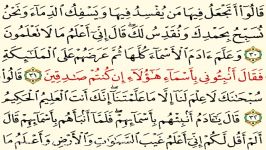 قَالُوٓا۟ أَتَجْعَلُ فِيهَا مَن يُفْسِدُ فِيهَا وَيَسْفِكُ ٱلدِّمَآءَ وَنَحْنُ
نُسَبِّحُ بِحَمْدِكَ وَنُقَدِّسُ لَكَ قَالَ إِنِّىٓ أَعْلَمُ مَا لَا تَعْلَمُونَ
٣٠ وَعَلَّمَ ءَادَمَ ٱلْأَسْمَآءَ كُلَّهَا ثُمَّ عَرَضَهُمْ عَلَى ٱلْمَلَٰٓئِكَةِ
فَقَالَ أَنۢبِـُٔونِى بِأَسْمَآءِ هَٰٓؤُلَآءِ إِن كُنتُمْ صَٰدِقِينَ ٣١ قَالُوا۟
سُبْحَٰنَكَ لَا عِلْمَ لَنَآ إِلَّا مَا عَلَّمْتَنَآ إِنَّكَ أَنتَ ٱلْعَلِيمُ ٱلْحَكِيمُ
٣٢ قَالَ يَٰٓـَٔادَمُ أَنۢبِئْهُم بِأَسْمَآئِهِمْ فَلَمَّآ أَنۢبَأَهُم بِأَسْمَآئِهِمْ قَالَ
أَلَمْ أَقُل لَّكُمْ إِنِّىٓ أَعْلَمُ غَيْبَ ٱلسَّمَٰوَٰتِ وَٱلْأَرْضِ وَأَعْلَمُ مَا